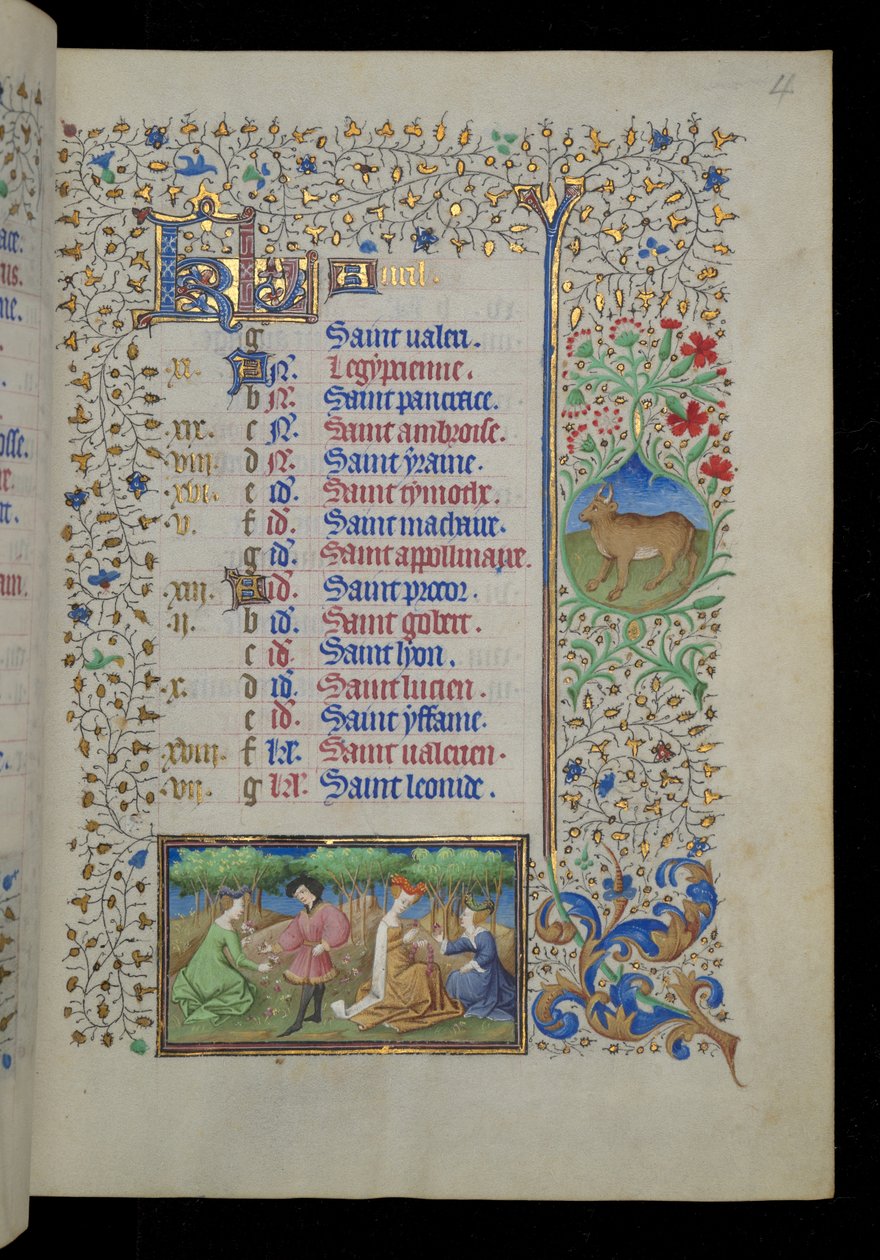 4
KL Auril.
g Saint ualeri.
.xi. A N. Legypcienne.
b N. Saint pancrace.
.xix. c N. Saint ambroise.
.viii. d N. Saint yraine.
.xvi. e id. Saint tymothe.
.v. f id. Saint machaire.
g id. Saint appollinaire.
.xiii. A id. Saint procor.
.ii. b id. Saint gobert.
c id. Saint lyon.
.x. d id. Saint lucien.
e id. Saint yffame.
.xviii. f kl. Saint ualerien.
.vii. g kl. Saint leonide.